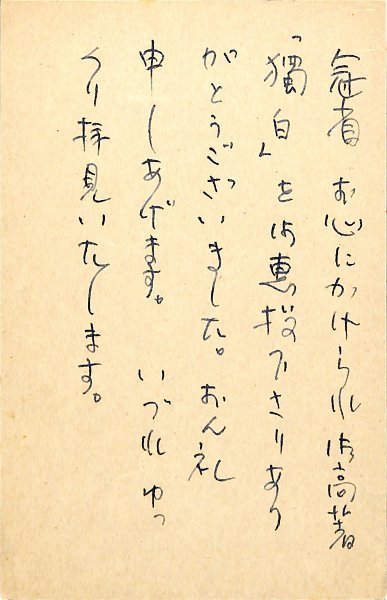 冠省 お心にかけられ御高著
「獨白」を御恵投下さりあり
がとうございました。おん礼
申しあげます。いづれゆっ
くり拝見いたします。